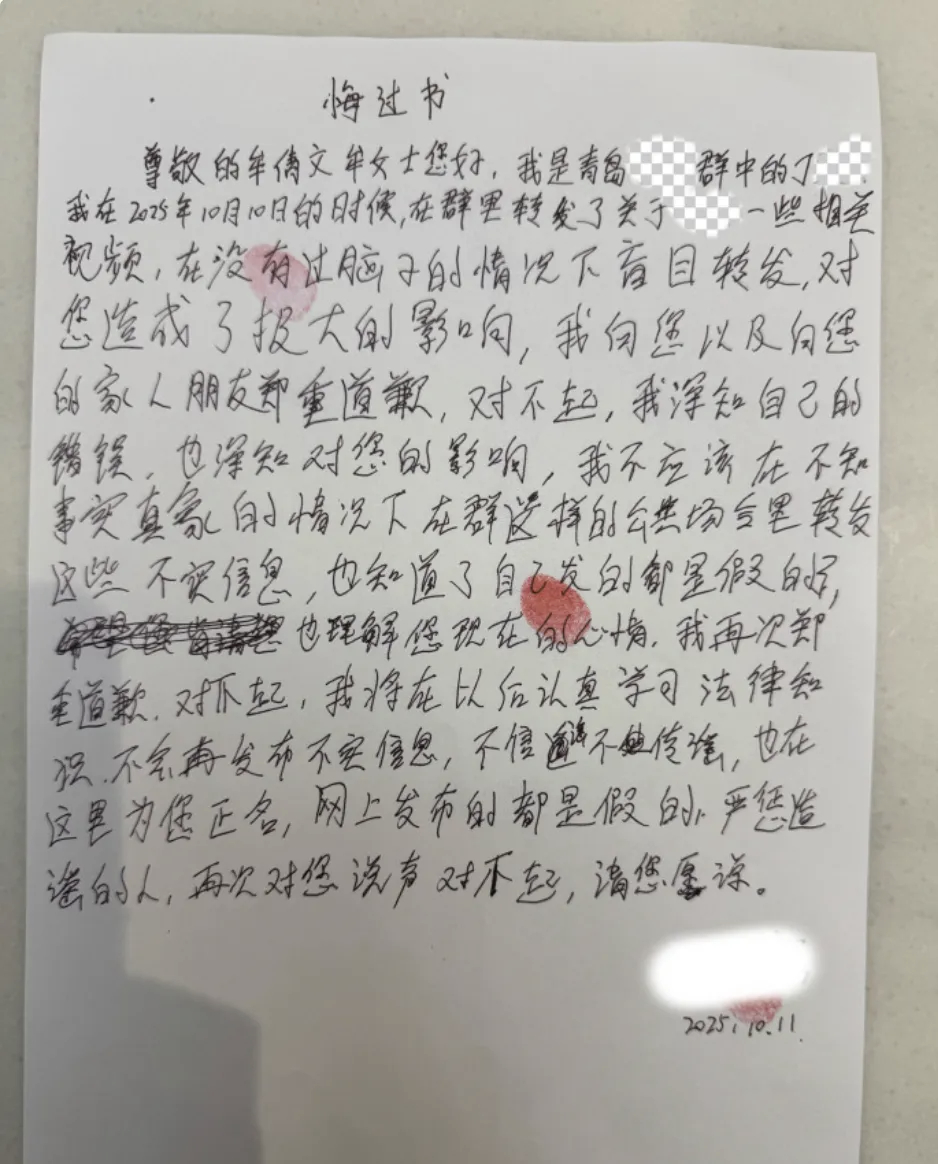 悔过书
尊敬的牟倩文牟女士您好,我是青岛 群中的丁
我在2025年10月10日的时候,在群里转发了关于 一些相关
视频,在没有过脑子的情况下盲目转发,对
您造成了极大的影响,我向您以及向您
的家人朋友郑重道歉,对不起,我深知自己的
错误,也深知对您的影响,我不应该在不知
事实真象的情况下在群这样的公共场合里转发
这些不实信息,也知道了自己发的都是假的,
也理解您现在的心情.我再次郑
重道歉.对不起,我将在以后认真学习法律知
识.不会再发布不实信息,不信谣不传谣,也在
这里为您正名,网上发布的都是假的,严惩造
谣的人,再次对您说声对不起,请您原谅。
2025.10.11.